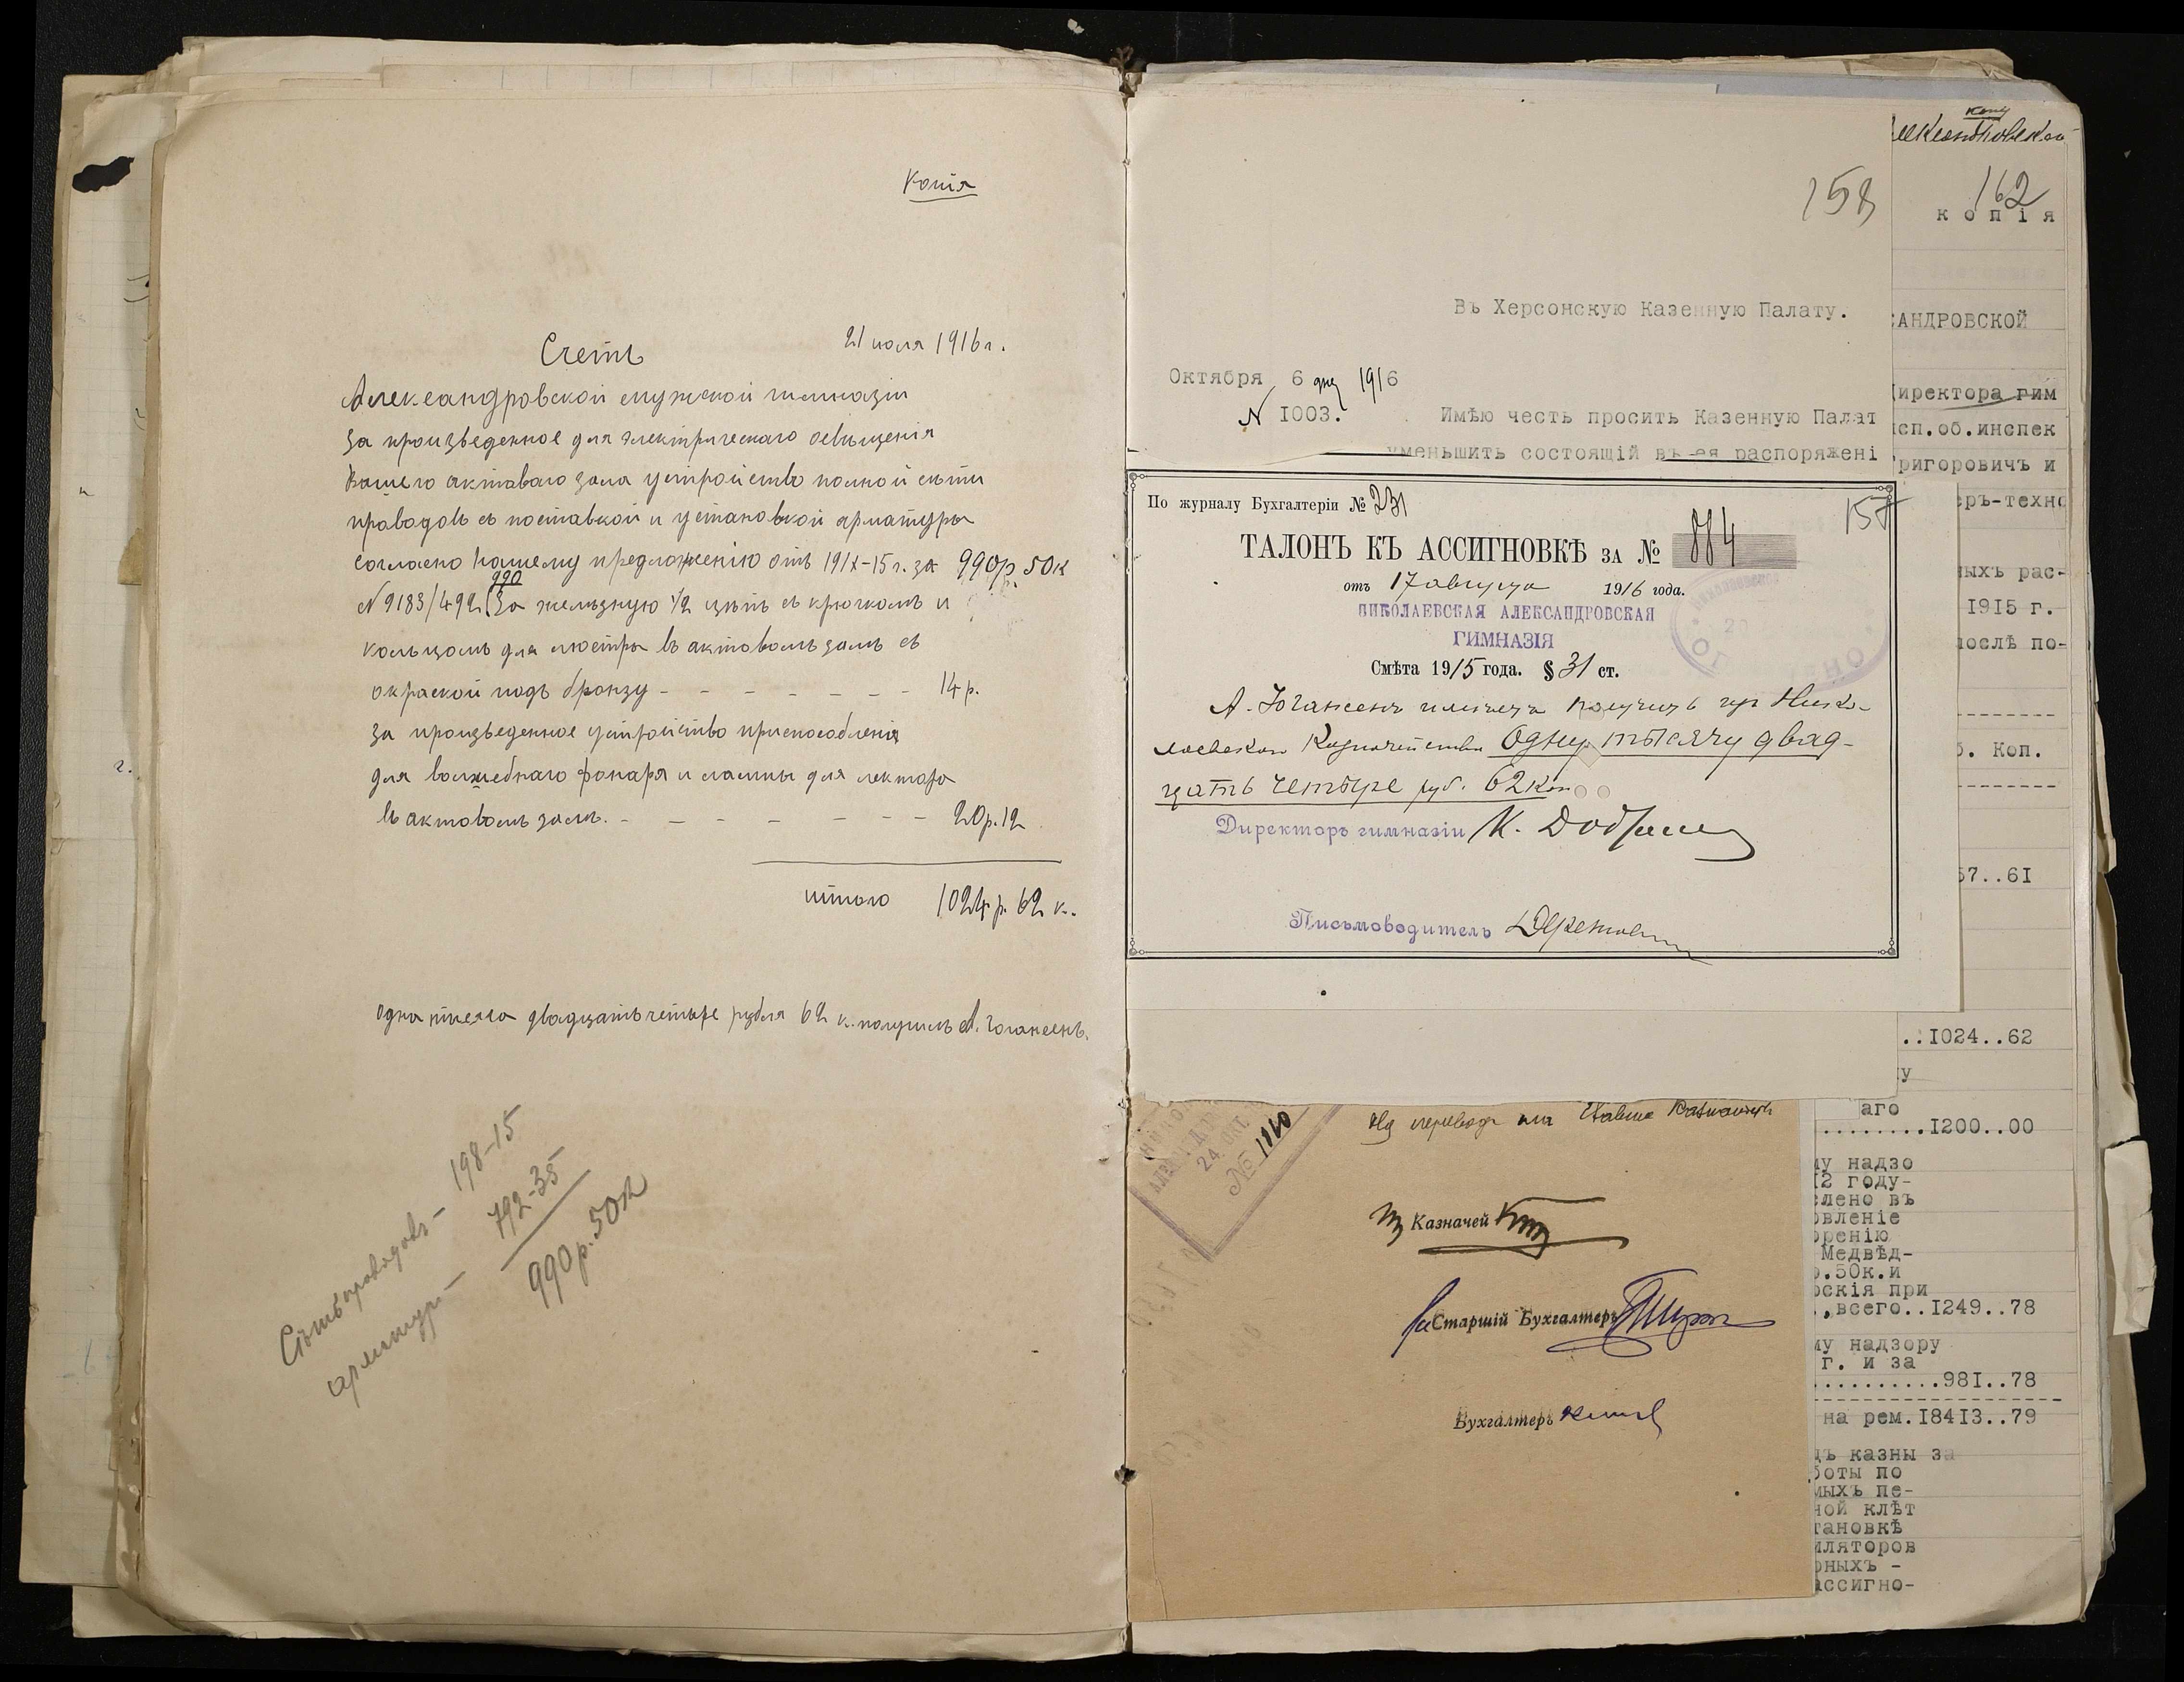 Копія
Счетъ
21 июля 1916 г.
Александровской мужской гимназіи
за произведенное для электрическаго освѣщенія
Вашего актаваго зала устройство полной сѣти
проводовъ съ поставкой и установкой арматуры
согласно нашему предложенію отъ 19IX-15 г. за 990р. 50к
990
N 9183/492. За желѣзную 1/2 цѣпь съ крючкомъ и
кольцомъ для люстры въ актовомъ залѣ съ
окраской подъ бронзу - - - - - - - 14 р.
за произведенное устройство приспособленія
для волшебнаго фонаря и лампы для лектора
въ актовомъ залѣ. - - - - - - - 20р.12
итого 1024 р. 62 к.
Одна тысяча двадцать четыре рубля 62 к. получилъ А. Іогансенъ.
Сѣть проводовъ - 198-15
арматур. - 792-35
990 р. 50к
158
Въ Херсонскую Казенную Палату.
Октября 6 дня 1916
N 1003.
Имѣю честь просить Казенную Палат
уменьшить состоящій въ ея распоряжені
По журналу Бухгалтеріи № 231
157
ТАЛОНЪ КЪ АССИГНОВКѢ ЗА № 884
отъ 17 августа 1916 года.
НИКОЛАЕВСКАЯ АЛЕКСАНДРОВСКАЯ
ГИМНАЗІЯ
Смѣта 1915 года. § 31 ст.
А. Іогансенъ имѣетъ получить изъ Нико-
лаевскаго Казначейства Одну тысячу двад-
цать четыре руб. 62 коп
Директоръ гимназіи
Письмоводитель
24 ОКТ.
№ 1110
Казначей
Старшій Бухгалтеръ
Бухгалтеръ
162
копія
САНДРОВСКОЙ
Директора гим
исп.об.инспек
ригоровичъ и
еръ-техно
ныхъ рас-
1915 г.
послѣ по-
б. Коп.
67..61
..:1024..62
у
аго
........1200..00
му надзо
12 году-
слено въ
овленіе
оренію
Медвѣд-
р.50к.и
рскія при
.,всего..1249..78
му надзору
г. и за
..........981..78
на рем.18413..79
дъ казны за
боты по
мыхъ пе-
ной клѣт
тановкѣ
иляторов
рныхъ -
ассигно-